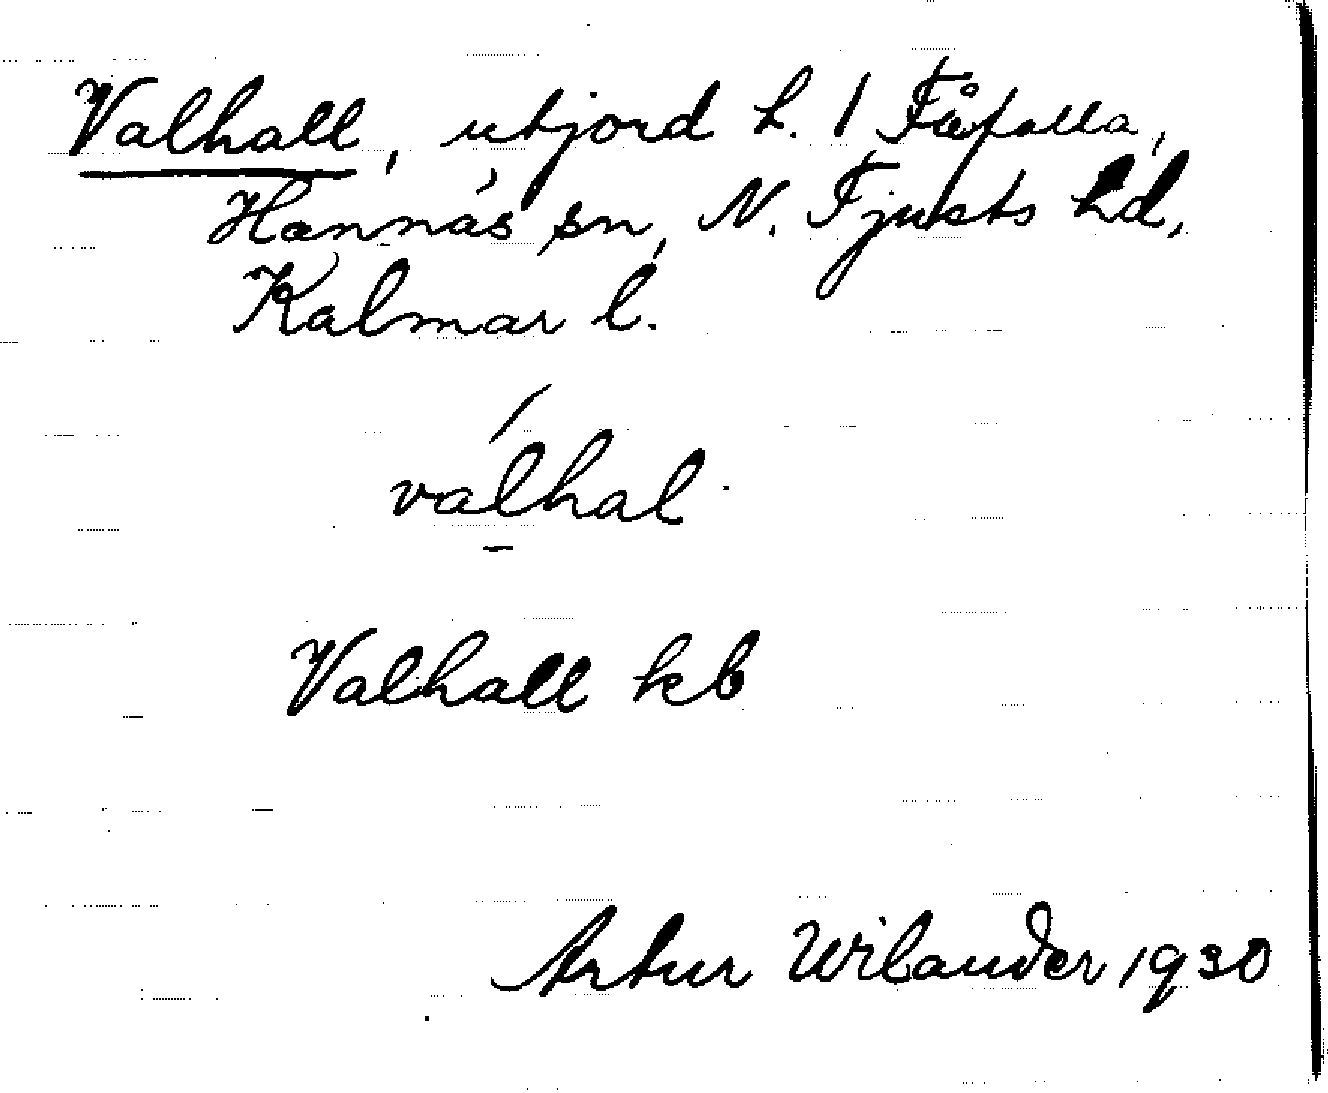 Valhall, utjord t. 1 Fåfalla,
Hannäs sn, N. Tjusts hd,
Kalmar l.
valhal
Valhall kb
Artur Wilander 1930